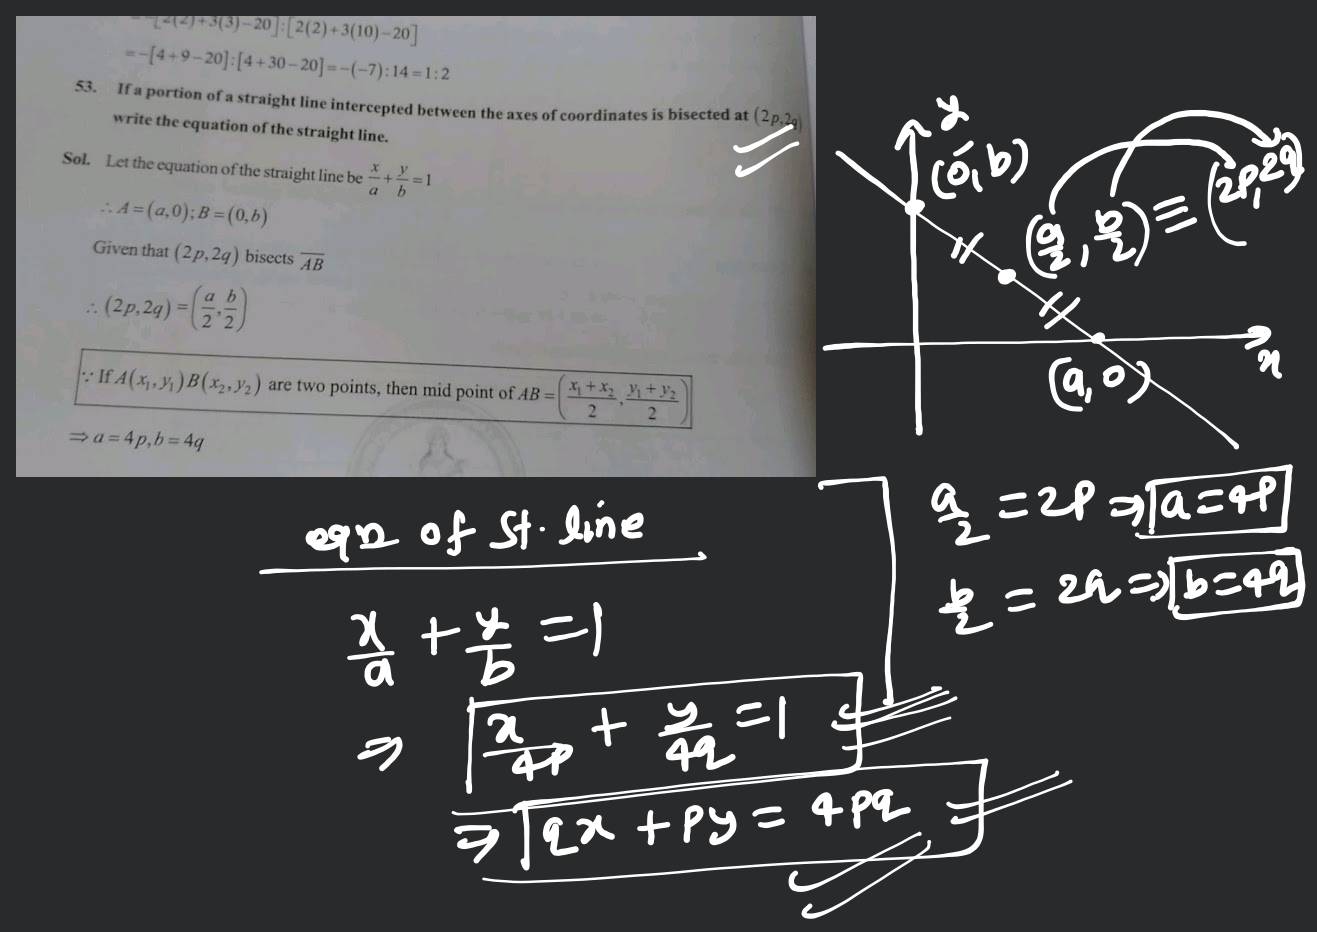 = -[2(2)+3(3)-20]:[2(2)+3(10)-20]
= -[4+9-20]:[4+30-20] = -(-7):14 = 1:2
53. If a portion of a straight line intercepted between the axes of coordinates is bisected at (2p,2q)
write the equation of the straight line.
Sol. Let the equation of the straight line be x/a + y/b = 1
∴ A = (a,0); B = (0,b)
Given that (2p,2q) bisects AB
∴ (2p,2q) = (a/2, b/2)
∵ If A(x₁,y₁) B(x₂,y₂) are two points, then mid point of AB = ((x₁+x₂)/2, (y₁+y₂)/2)
⇒ a = 4p, b = 4q
y
(0,b)
(a/2, b/2) ≡ (2p,2q)
(a,0)
x
a/2 = 2p ⇒ a=4p
b/2 = 2q ⇒ b=4q
eqn of St. line
x/a + y/b = 1
⇒ x/4p + y/4q = 1
⇒ qx + py = 4pq